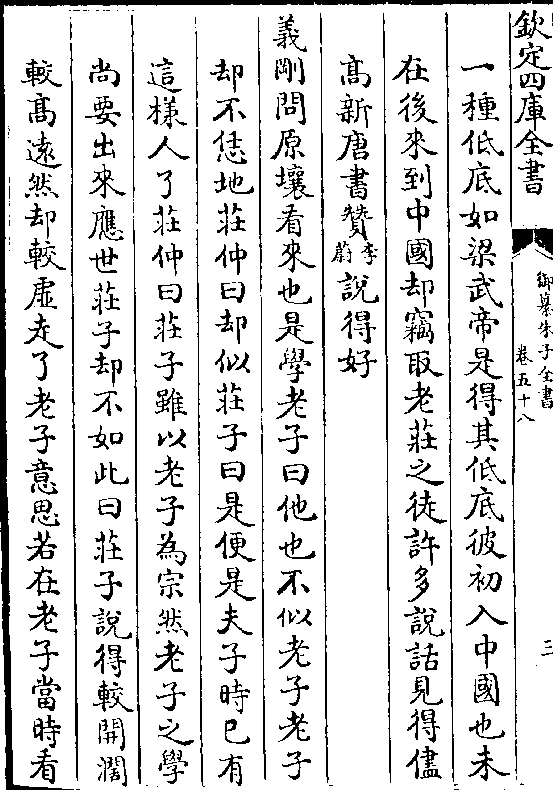 欽定四庫全書
御纂朱子全書
卷五十八
三
一種低底如梁武帝是得其低底彼初入中國也未
在後來到中國却竊取老莊之徒許多說話見得儘
高新唐書贊李蔚說得好
義剛問原壤看來也是學老子曰他也不似老子老子
却不恁地莊仲曰却似莊子曰是便是夫子時已有
這樣人了莊仲曰莊子雖以老子為宗然老子之學
尚要出來應世莊子却不如此曰莊子說得較開濶
較髙逺然却較虛走了老子意思若在老子當時看